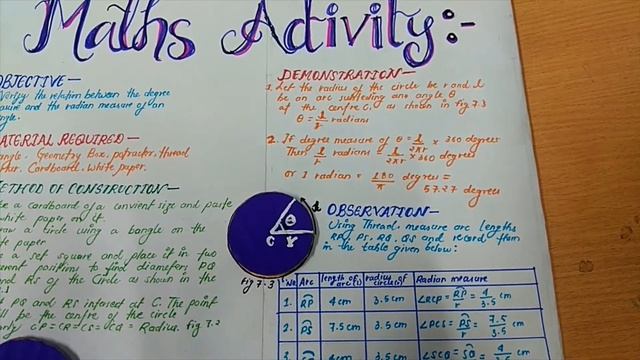 Maths Activity:-
OBJECTIVE—
Verify the relation between the degree
measure and the radian measure of an
angle.
MATERIAL REQUIRED—
Bangle, Geometry Box, patractor, thread
Cardboard, white paper.
METHOD OF CONSTRUCTION—
a cardboard of a convient size and paste
white paper on it.
a circle using a bangle on the
white paper
a set square and place it in two
different positions to find diameters PQ
and RS of the circle as shown in the
PQ and RS intersect at C. The point
will be the centre of the circle
CP = CR = CS = CQ = Radius. Fig 7.2
DEMONSTRATION—
1. Let the radius of the circle be r and l
be an arc subtending an angle θ
at the centre C, as shown in fig 7.3
θ = l/r radians
2. If degree measure of θ = l/2πr × 360 degrees
Then l/r radians l/2πr × 360 degrees
or 1 radian = 180/π degree =
57.27 degrees
C r θ l
Fig 7.3
OBSERVATION—
Using Thread, measure arc lengths
RP, PS, RQ, QS and record them
in the table given below:
S.No Arc length of arc(l) radius of circle(r) Radian measure
1. RP 4 cm 3.5 cm ∠RCP = RP/r = 4/3.5 cm
2. PS 7.5 cm 3.5 cm ∠PCS = PS/r = 7.5/3.5 cm
3. 4 cm 3.5 cm ∠SCQ = SQ 4 cm